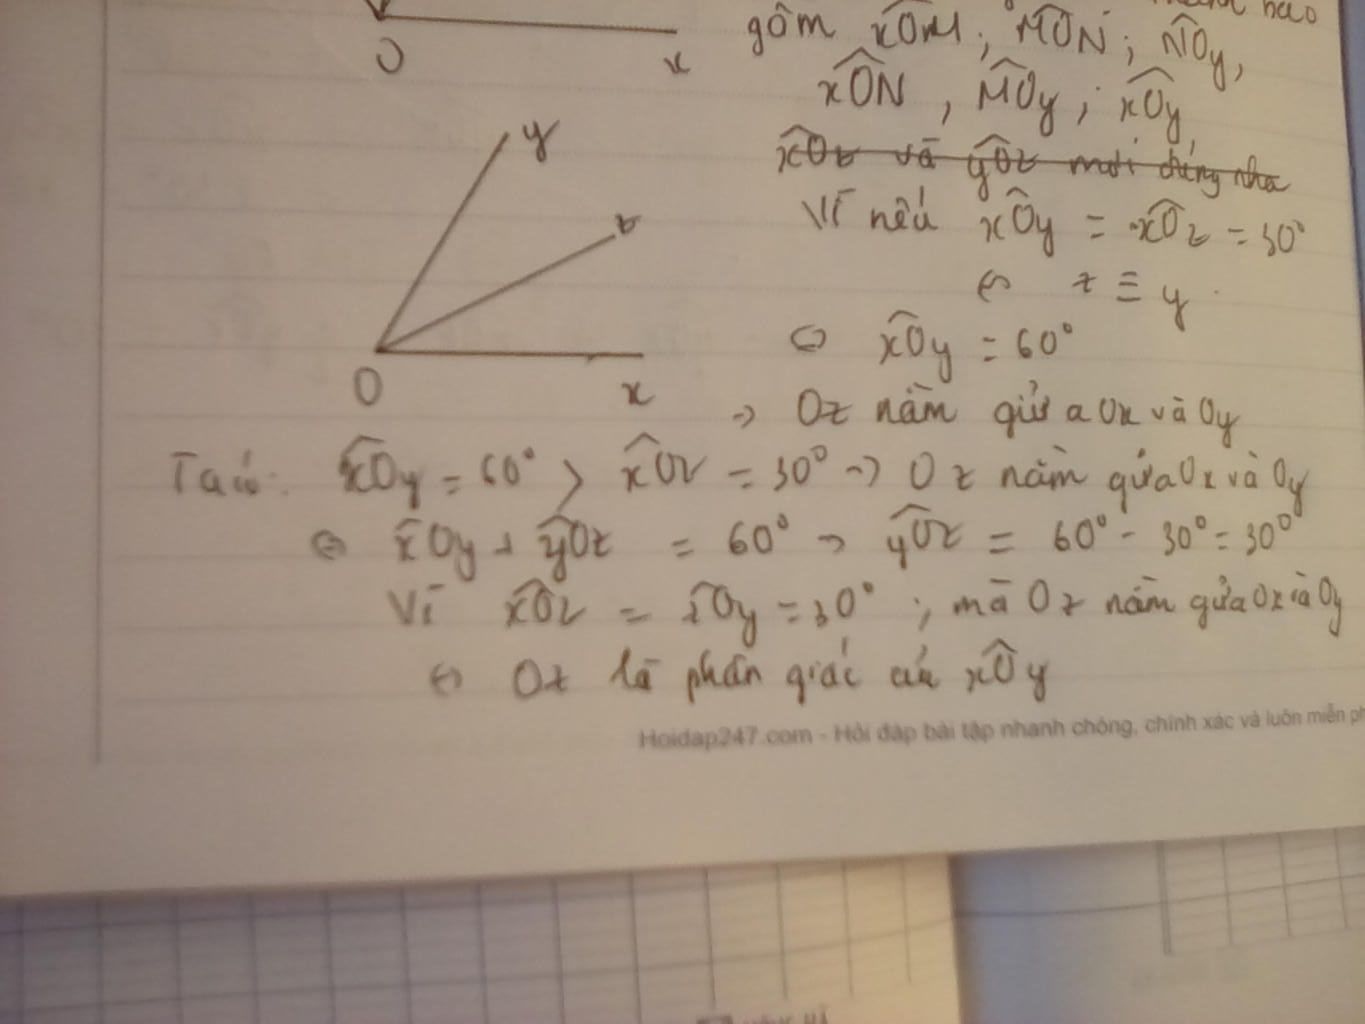 O x
gồm xÔM ; MÔN ; NÔy,
xÔN , MÔy ; xÔy,
y
xÔz và yÔz mới đúng nha
z
Vì nếu xÔy = xÔz = 30°
⇔ z ≡ y
⇔ xÔy = 60°
O x
→ Oz nằm giữa Ox và Oy
Ta có: xÔy = 60° > xÔz = 30° → Oz nằm giữa Ox và Oy
⇔ xÔy + yÔz = 60° → yÔz = 60° - 30° = 30°
Vì xÔz = xÔy = 30° ; mà Oz nằm giữa Ox và Oy
⇔ Oz là phân giác của xÔy
Hoidap247.com - Hỏi đáp bài tập nhanh chóng, chính xác và luôn miễn ph